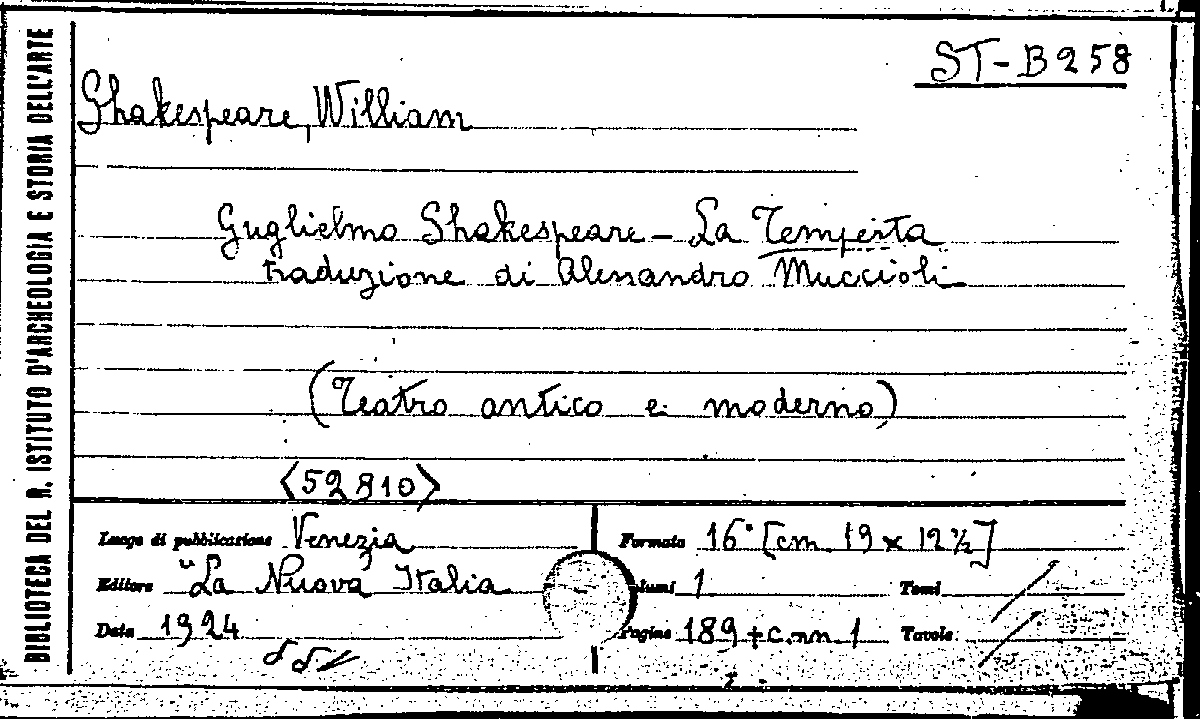 BIBLIOTECA DEL R. ISTITUTO D'ARCHEOLOGIA E STORIA DELL'ARTE
ST-B258
Shakespeare, William
Guglielmo Shakespeare - La Tempesta
traduzione di Alessandro Muccioli
(Teatro antico e moderno)
<52810>
Luogo di pubblicazione Venezia
Editore "La Nuova" Italia
Data 1924
Formato 16° [cm. 19 x 12 ½]
Volumi 1 Tomi
Pagine 189 + c.nn. 1 Tavole